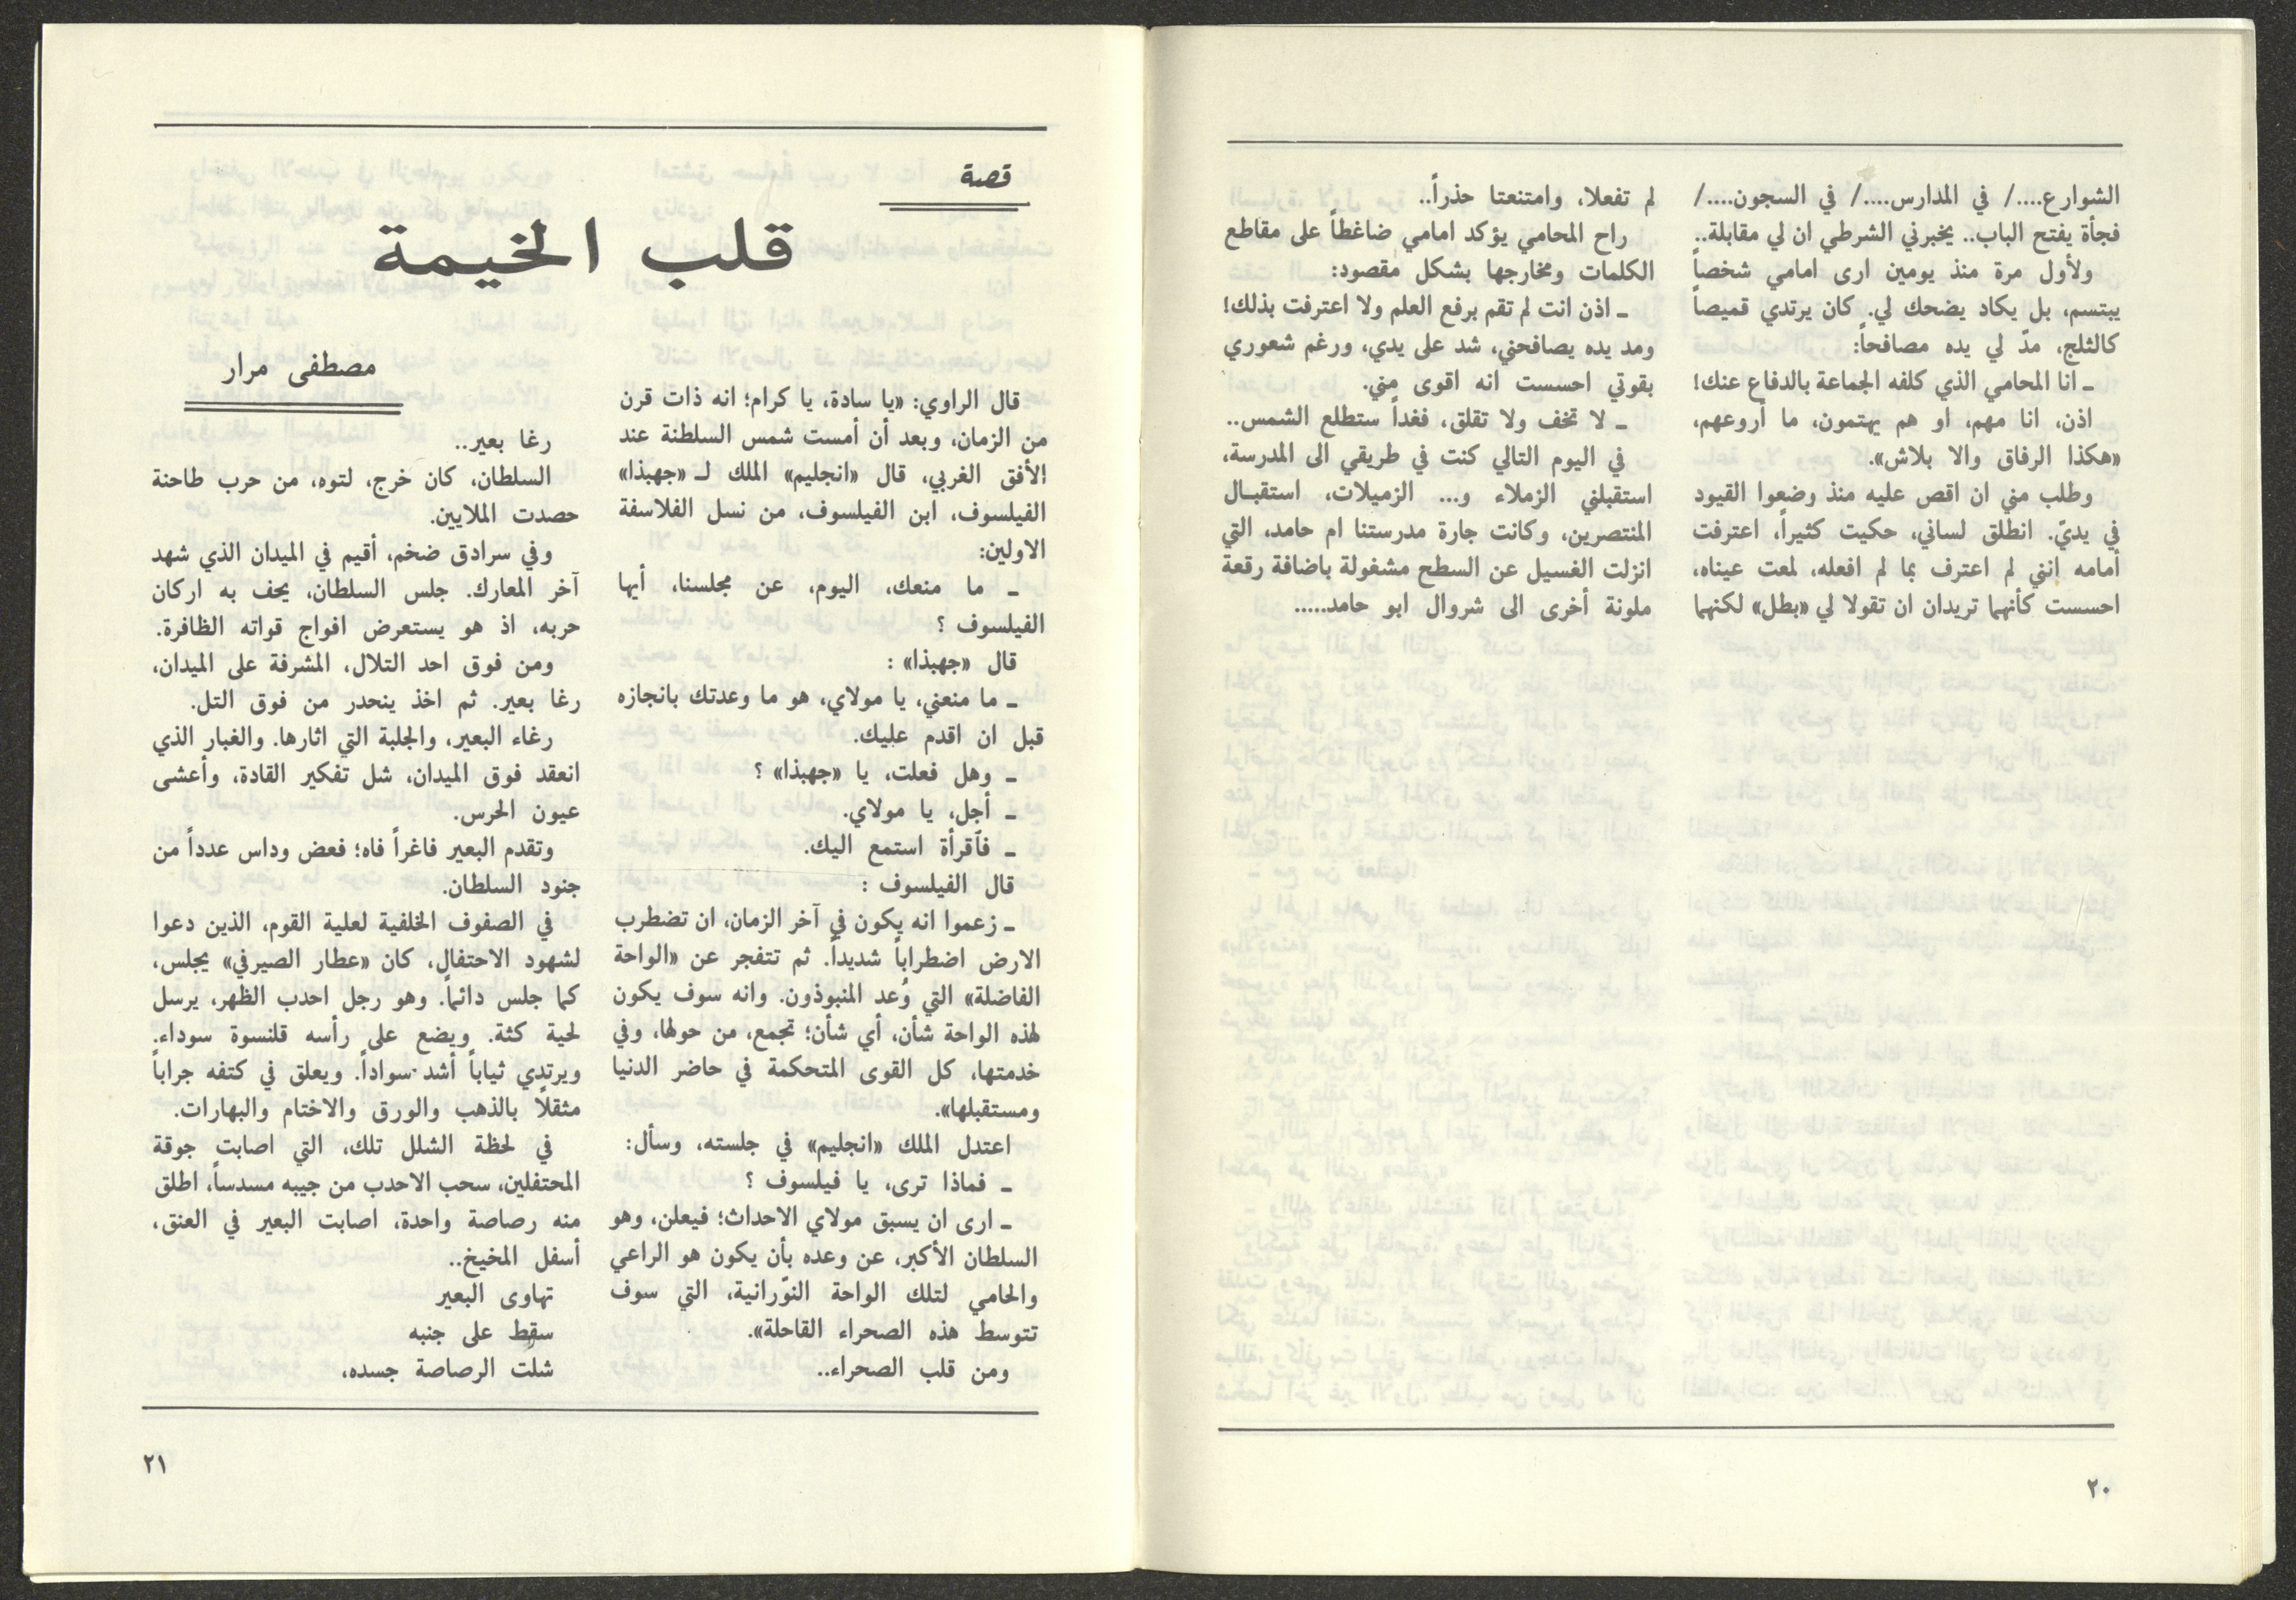 الشوارع..../ في المدارس..../ في السجون..../
فجأة يفتح الباب.. يخبرني الشرطي ان لي مقابلة..
ولأول مرة منذ يومين ارى امامي شخصاً
يبتسم، بل يكاد يضحك لي. كان يرتدي قميصاً
كالثلج، مدّ لي يده مصافحاً:
ـ أنا المحامي الذي كلفه الجماعة بالدفاع عنك!
اذن، انا مهم، او هم يهتمون، ما أروعهم،
«هكذا الرفاق والا بلاش».
وطلب مني ان اقص عليه منذ وضعوا القيود
في يديّ. انطلق لساني، حكيت كثيراً، اعترفت
أمامه إنني لم اعترف بما لم افعله، لمعت عيناه،
احسست كأنهما تريدان ان تقولا لي «بطل» لكنهما
لم تفعلا، وامتنعتا حذراً..
راح المحامي يؤكد امامي ضاغطاً على مقاطع
الكلمات ومخارجها بشكل مقصود:
ـ اذن انت لم تقم برفع العلم ولا اعترفت بذلك!
ومد يده يصافحني، شد على يدي، ورغم شعوري
بقوتي احسست انه اقوى مني.
ـ لا تخف ولا تقلق، فغداً ستطلع الشمس..
في اليوم التالي كنت في طريقي الى المدرسة،
استقبلني الزملاء و... الزميلات، استقبال
المنتصرين، وكانت جارة مدرستنا ام حامد، التي
انزلت الغسيل عن السطح مشغولة باضافة رقعة
ملونة أخرى الى شروال ابو حامد.....
٢٠
قصة
قلب الخيمة
مصطفى مرار
قال الراوي: «يا سادة، يا كرام؛ انه ذات قرن
من الزمان، وبعد أن أمست شمس السلطنة عند
الأفق الغربي، قال «انجليم» الملك لـ «جهبذا»
الفيلسوف، ابن الفيلسوف، من نسل الفلاسفة
الاولين:
ـ ما منعك، اليوم، عن مجلسنا، أيها
الفيلسوف ؟
قال «جهبذا» :
ـ ما منعني، يا مولاي، هو ما وعدتك بانجازه
قبل ان اقدم عليك.
ـ وهل فعلت، يا «جهبذا» ؟
ـ أجل، يا مولاي.
ـ فآقرأة استمع اليك.
قال الفيلسوف :
ـ زعموا انه يكون في آخر الزمان، ان تضطرب
الارض اضطراباً شديداً. ثم تتفجر عن «الواحة
الفاضلة» التي وُعد المنبوذون. وانه سوف يكون
لهذه الواحة شأن، أي شأن؛ تجمع، من حولها، وفي
خدمتها، كل القوى المتحكمة في حاضر الدنيا
ومستقبلها».
اعتدل الملك «انجليم» في جلسته، وسأل:
ـ فماذا ترى، يا فيلسوف ؟
ـ ارى ان يسبق مولاي الاحداث؛ فيعلن، وهو
السلطان الأكبر، عن وعده بأن يكون هو الراعي
والحامي لتلك الواحة النوّرانية، التي سوف
تتوسط هذه الصحراء القاحلة».
ومن قلب الصحراء..
رغا بعير..
السلطان، كان خرج، لتوه، من حرب طاحنة
حصدت الملايين.
وفي سرادق ضخم، أقيم في الميدان الذي شهد
آخر المعارك. جلس السلطان، يحف به اركان
حربه، اذ هو يستعرض افواج قواته الظافرة.
ومن فوق احد التلال، المشرفة على الميدان،
رغا بعير. ثم اخذ ينحدر من فوق التل.
رغاء البعير، والجلبة التي اثارها. والغبار الذي
انعقد فوق الميدان، شل تفكير القادة، وأعشى
عيون الحرس.
وتقدم البعير فاغراً فاه؛ فعض وداس عدداً من
جنود السلطان.
في الصفوف الخلفية لعلية القوم، الذين دعوا
لشهود الاحتفال، كان «عطار الصيرفي» يجلس،
كما جلس دائماً. وهو رجل احدب الظهر، يرسل
لحية كثة. ويضع على رأسه قلنسوة سوداء.
ويرتدي ثياباً أشد سواداً. ويعلق في كتفه جراباً
مثقلاً بالذهب والورق والاختام والبهارات.
في لحظة الشلل تلك، التي اصابت جوقة
المحتفلين، سحب الاحدب من جيبه مسدساً، اطلق
منه رصاصة واحدة، اصابت البعير في العنق،
أسفل المخيخ..
تهاوى البعير
سقط على جنبه
شلت الرصاصة جسده،
٢١